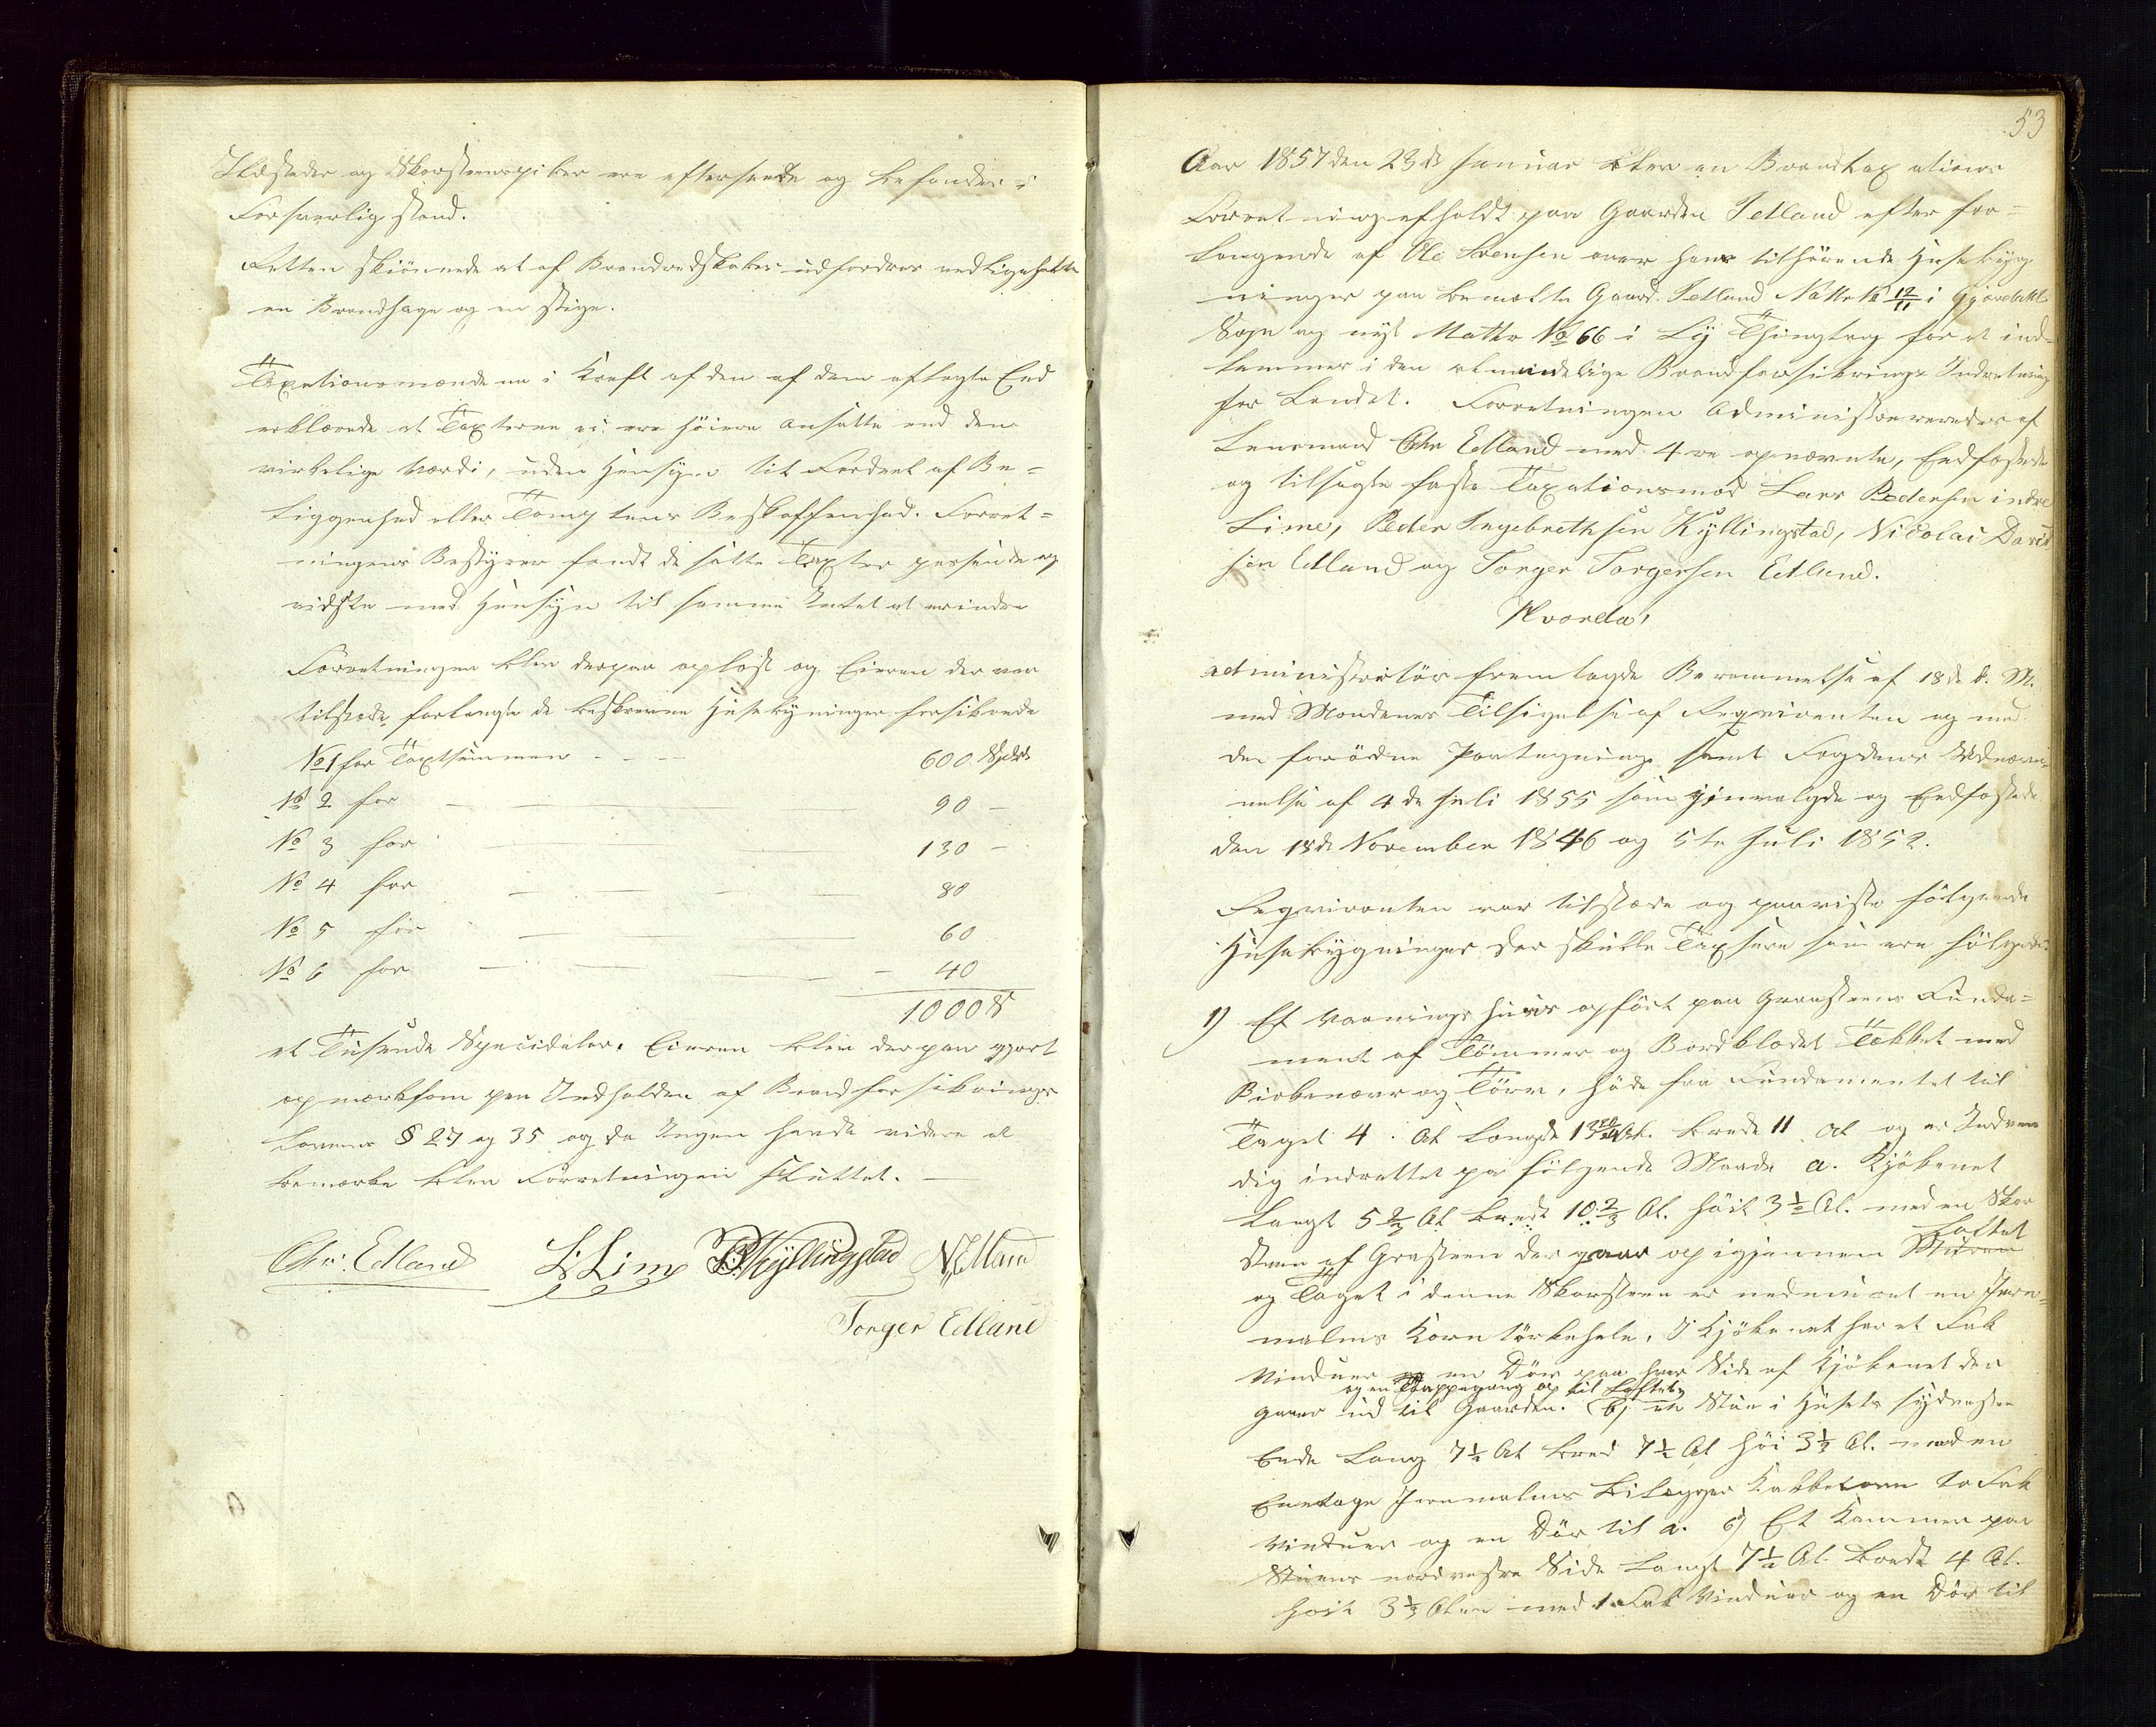 Ildsteder og Skorsteenspiber ere efterseede og befundes i
Forsvarlig stand.
Retten skiønnede at af Brandredskaber udfordres vedligeholdte
en Brandhage og en stige.
Taxationsmændene i Kraft af den af dem aflagte Eed
erklærede at Taxterne ei ere høiere ansatte end den
virkelige Værdi, uden Hensyn til Fordeel af Be-
liggenhed eller Tomptens Beskaffenhed. Forret-
ningens Bestyrer fandt de satte Taxter passende og
vidste med Hensyn til samme Intet at erindre
Forretningen blev derpaa oplæst og Eieren der var
tilstæde forlangte de beskrevne Husebygninger forsikrede
No 1 for Taxtsummen - - - - 600 Spdlr
No 2 for - 90 -
No 3 for 130 -
No 4 for - 80
No 5 for 60
No 6 for - 40
1000 S
et Tusende Speciedaler. Eieren blev derpaa gjort
opmerksom paa Indholden af Brandforsikrings
Lovens § 27 og 35 og da Ingen havde videre at
bemærke blev Forretningen sluttet. -
Chr. Edland L. Lime P I Kyllingstad N. Edland
Torger Edland
53
Aar 1857 den 23de Januar blev en Brandtaxations
Forretning afholdt paa Gaarden Tetland efter for-
langende af Ole Svensen over hans tilhørende Husebyg
ninger paa bemældte Gaard Tetland Matr No 12/11 i Gjesdahl
Sogn og nyt Mattr No 66 i Ly Thinglag for at ind-
lemmes i den almindelige Brandforsikrings Indretning
for Landet. Forretningen Administreredes af
Lensmand Chr Edland med 4re opnævnte, Eedfæstede
og tilsagte faste Taxationsmænd Lars Pedersen indre
Lime, Peder Ingebrethsen Kyllingstad, Nicolai David
sen Edland og Torger Torgersen Edland.
Hvorda,
administratør fremlagde Berammelse af 18de d. M.
med Mændenes Tilsigelse af Reqvirenten og med
den fornødne Paategning samt Fogdens Udnævn-
nelse af 4de Juli 1855 som gjenvalgde og Eedfæstede
den 18de November 1846 og 5te Juli 1852.
Reqvirenten var tilstæde og paaviste følgende
Husebygninger der skulle Taxseres som ere følgende:
1) Et Vaaningshuus opført paa Graasteens Funda-
ment af Tømmer og Bordklædet Tækket med
Birkenæver og Tørv, høide fra Fundamentet til
Taget 4 Al Længde 13 Al. brede 11 Al og er Indven
dig indrettet paa følgende Maade a. Kjøkenet
Langt 5 2/3 Al bredt 10 2/3 Al. høit 3 1/2 Al. med en Skor
steen af Graasteen der gaar op igjennem Muren Loftet
og Taget i denne Skorsteen er nedmuret en Jern-
malms Korntørkehelle, I Kjøkenet har et Fak
Vinduer en Dør paa hver Side af Kjøkenet der
og en Trappegang op til Loftet
gaaer ud til Gaarden. b) en Stue i Husets sydvestre
Ende Lang 7 1/2 Al bred 7 1/2 Al høi 3 1/2 Al. med en
Eenetage Jernmalms Bilægger Kakkelovn to Fak
Vinduer og en Dør til a. c) Et Kammer paa
Stuens nordvestre Side Langt 7 1/2 Al bredt 4 Al.
høit 3 1/2 Alen med 1 Fak Vinduer og en Dør til